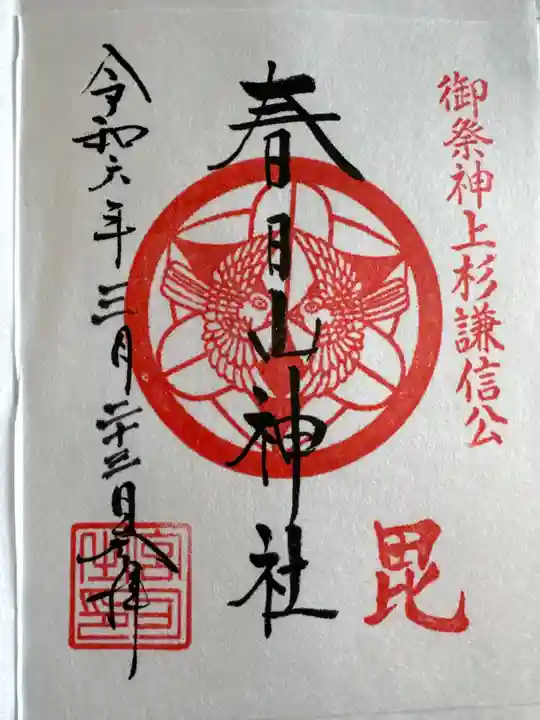 御祭神上杉謙信公
毘
春日山神社
令和六年三月二十三日